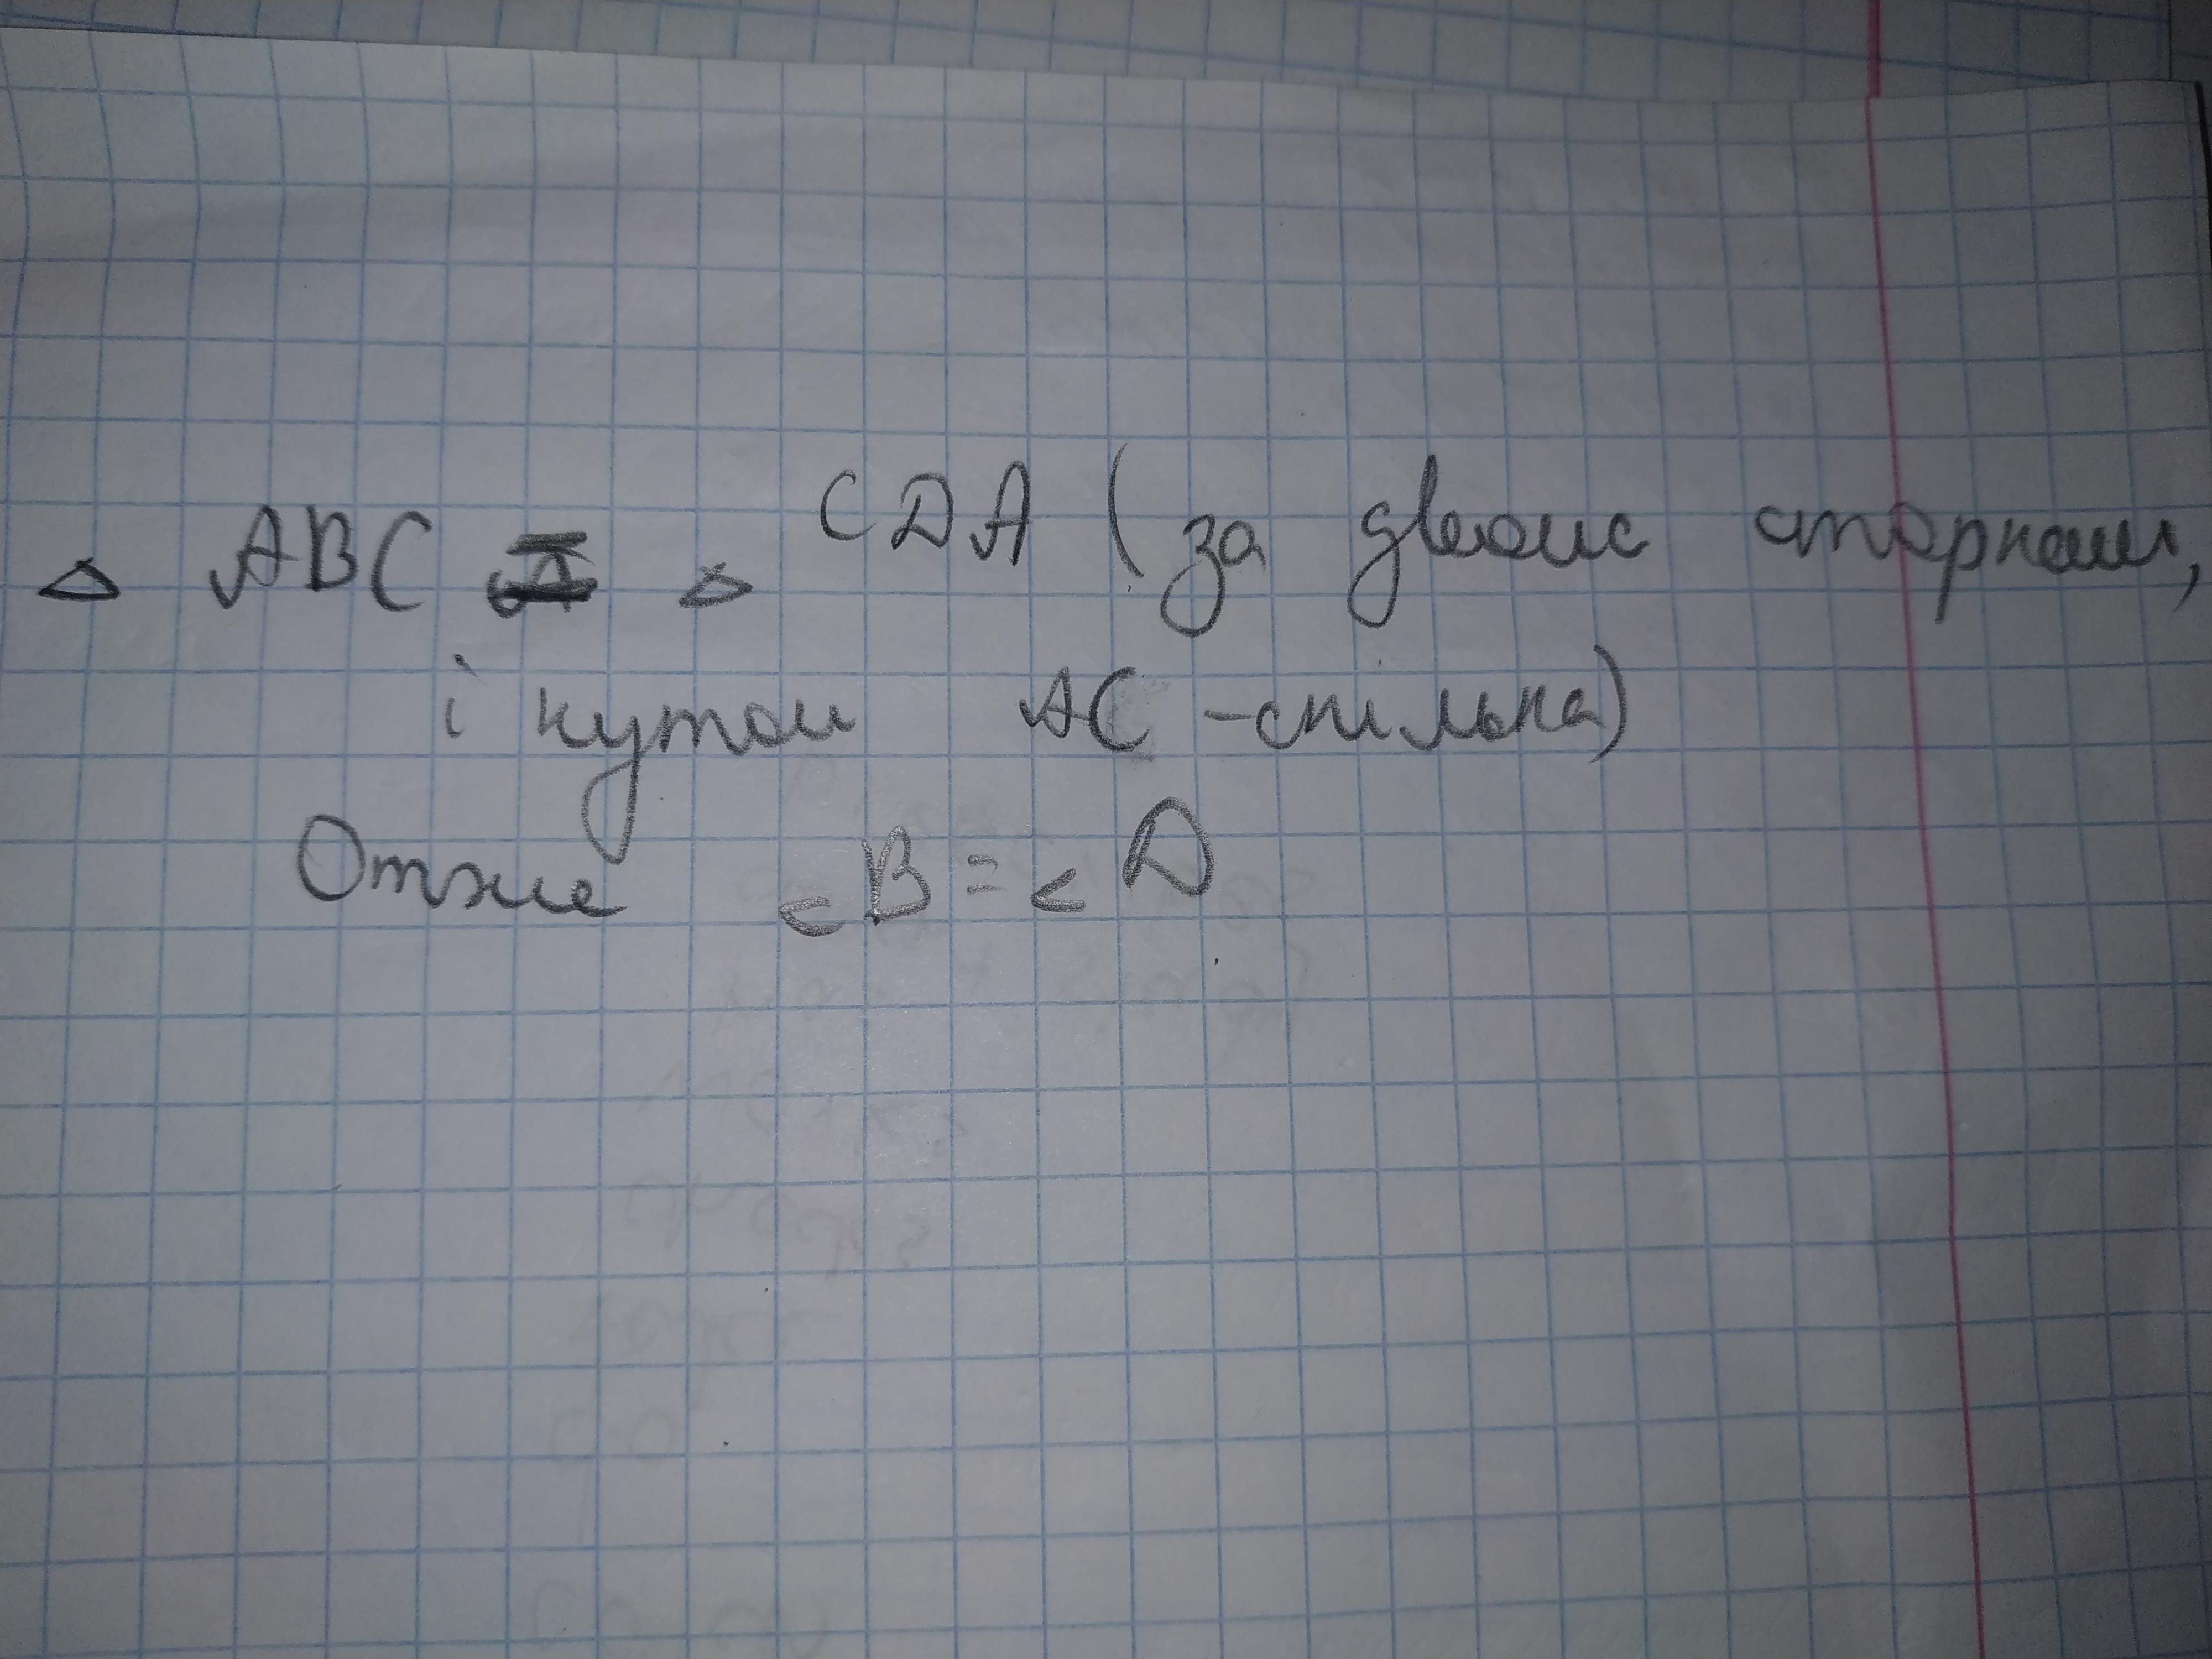 △ ABC = △ CDA (за двома сторнами,
і кутом AC - спільна)
Отже ∠B = ∠D